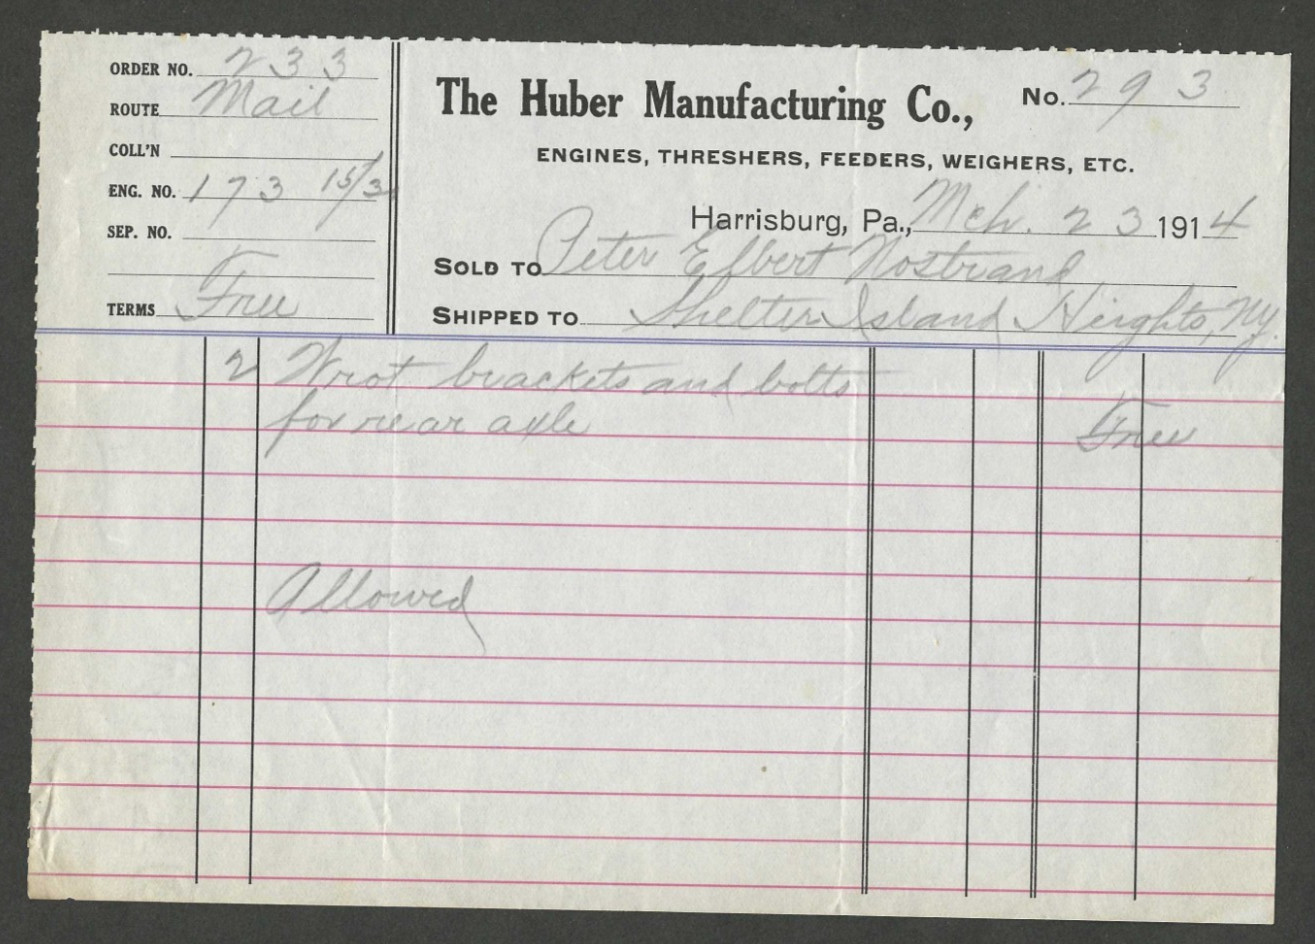 ORDER NO. 233
ROUTE Mail
COLL'N
ENG. NO. 173 15/3
SEP. NO.
TERMS Free
The Huber Manufacturing Co.,
No. 293
ENGINES, THRESHERS, FEEDERS, WEIGHERS, ETC.
Harrisburg, Pa., Mch. 23 1914
SOLD TO Peter Elbert Nostrand
SHIPPED TO Shelter Island Heights, Ny.
2 Wrot brackets and bolts
for rear axle Free
Allowed